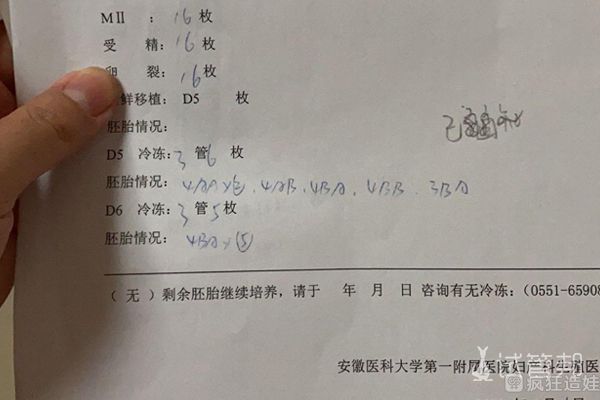 MⅡ : 16枚
受 精: 16枚
卵 裂: 16枚
鲜移植: D5 枚
胚胎情况:
已
D5 冷冻: 3 管 6 枚
胚胎情况: 4AA×2. 4AB. 4BA. 4BB. 3BA
D6 冷冻: 3 管 5 枚
胚胎情况: 4BA×⑤
(无)剩余胚胎继续培养,请于 年 月 日 咨询有无冷冻:(0551-65908
安徽医科大学第一附属医院妇产科生殖医
试管邦
疯狂造娃